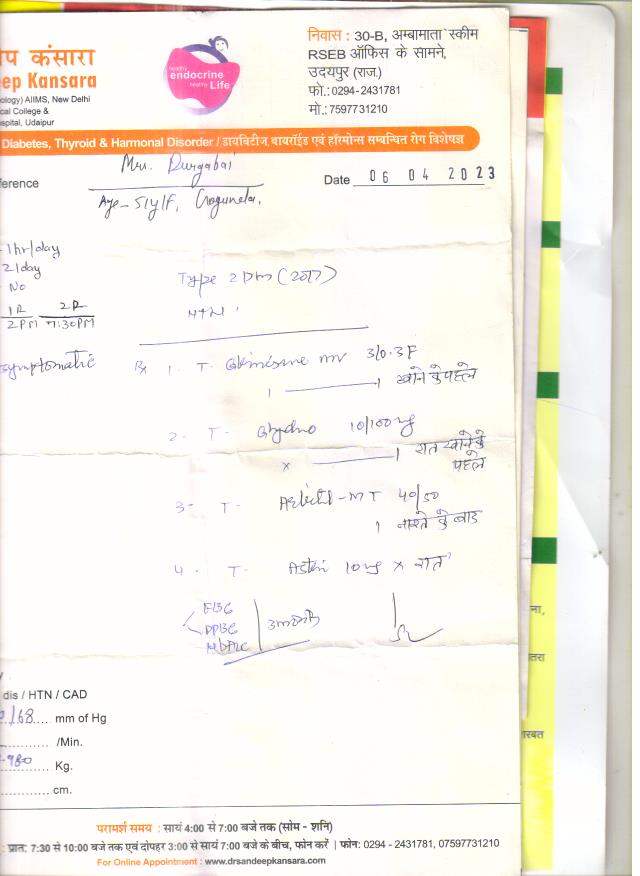 निवास : 30-B, अम्बामाता स्कीम
प कंसारा
RSEB ऑफिस के सामने,
eep Kansara
healthy
endocrine
healthy Life
उदयपुर (राज.)
ology) AIIMS, New Delhi
फो.: 0294-2431781
cal College &
spital, Udaipur
मो.: 7597731210
Diabetes, Thyroid & Harmonal Disorder / डायबिटीज, थायरॉईड एवं हॉरमोन्स सम्बन्धित रोग विशेषज्ञ
Mrs. Durgabai
ference
Date 06 04 2023
Age - 51y/F,
1hr/day
2/day
No
Type 2 DM (2017)
1R 2R
2PM 7:30PM
HTN
symptomatic
Rx 1. T. MV
1 1 खाने के पहले
2. T. 10/100mg
x 1 रात खाने के
पहले
3. T. -MT 40/50
1 नाश्ते के बाद
4. T. 10mg x रात
FBG
PPBG 3 month
HbA1c
dis / HTN / CAD
/68 mm of Hg
/Min.
Kg.
cm.
ना,
तरा
रबत
परामर्श समय : सायं 4:00 से 7:00 बजे तक (सोम - शनि)
प्रात: 7:30 से 10:00 बजे तक एवं दोपहर 3:00 से सायं 7:00 बजे के बीच, फोन करें | फोन: 0294 - 2431781, 07597731210
For Online Appointment : www.drsandeepkansara.com